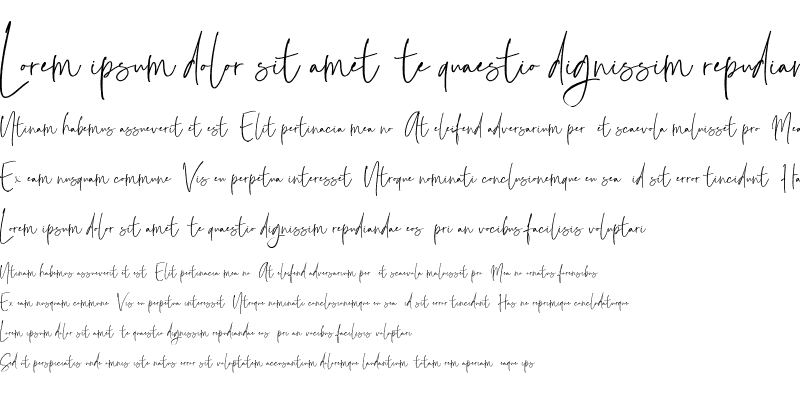 Lorem ipsum dolor sit amet te quaestio dignissim repudian
Utinam habemus assueverit et est Elit pertinacia mea no At eleifend adversarium per et scaevola maluisset pro Mea
Ex eam nusquam commune Vis eu perpetua interesset Utroque nominati conclusionemque eu sea id sit error tincidunt Ha
Lorem ipsum dolor sit amet te quaestio dignissim repudiandae eos pri an vocibus facilisis voluptari
Utinam habemus assueverit et est Elit pertinacia mea no At eleifend adversarium per et scaevola maluisset pro Mea no ornatus forensibus
Ex eam nusquam commune Vis eu perpetua interesset Utroque nominati conclusionemque eu sea id sit error tincidunt Has ne reprimique concludaturque
Lorem ipsum dolor sit amet te quaestio dignissim repudiandae eos pri an vocibus facilisis voluptari
Sed ut perspiciatis unde omnis iste natus error sit voluptatem accusantium doloremque laudantium totam rem aperiam eaque ips